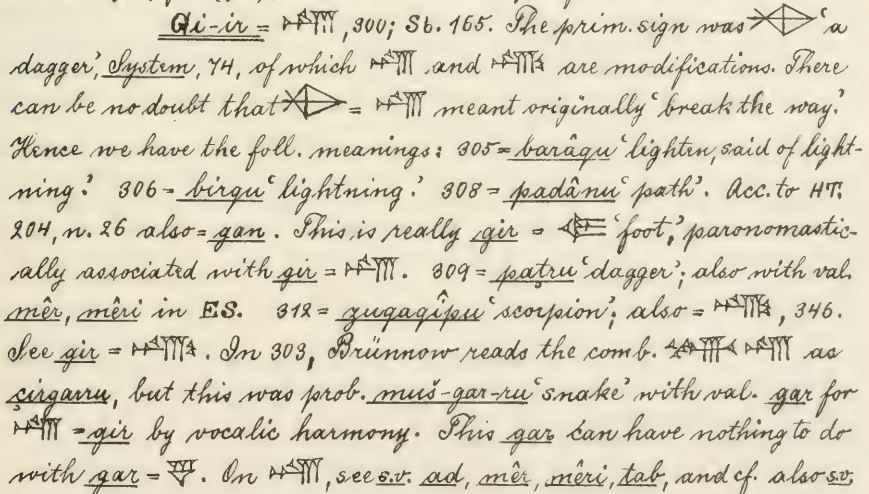 Gi-ir = 𒄈, 300; Sb. 165. The prim. sign was 'a
dagger', System, 74, of which 𒄈 and 𒄉 are modifications. There
can be no doubt that = 𒄈 meant originally 'break the way.'
Hence we have the foll. meanings: 305 = barâqu 'lighten, said of light-
ning.' 306 = birqu 'lightning.' 308 = padânu 'path'. Acc. to HT.
204, n. 26 also = gan. This is really gir = 'foot,' paronomastic-
ally associated with gir = 𒄈. 309 = paṭru 'dagger'; also with val.
mêr, mêri in ES. 312 = zugaqîpu 'scorpion'; also = 𒄉, 346.
See gir = 𒄉. In 303, Brünnow reads the comb. 𒄈 as
çirgarru, but this was prob. muš-gar-ru 'snake' with val. gar for
𒄈 = gir by vocalic harmony. This gar can have nothing to do
with gar = . On 𒄈, see s.v. ad, mêr, mêri, tab, and cf. also s.v.